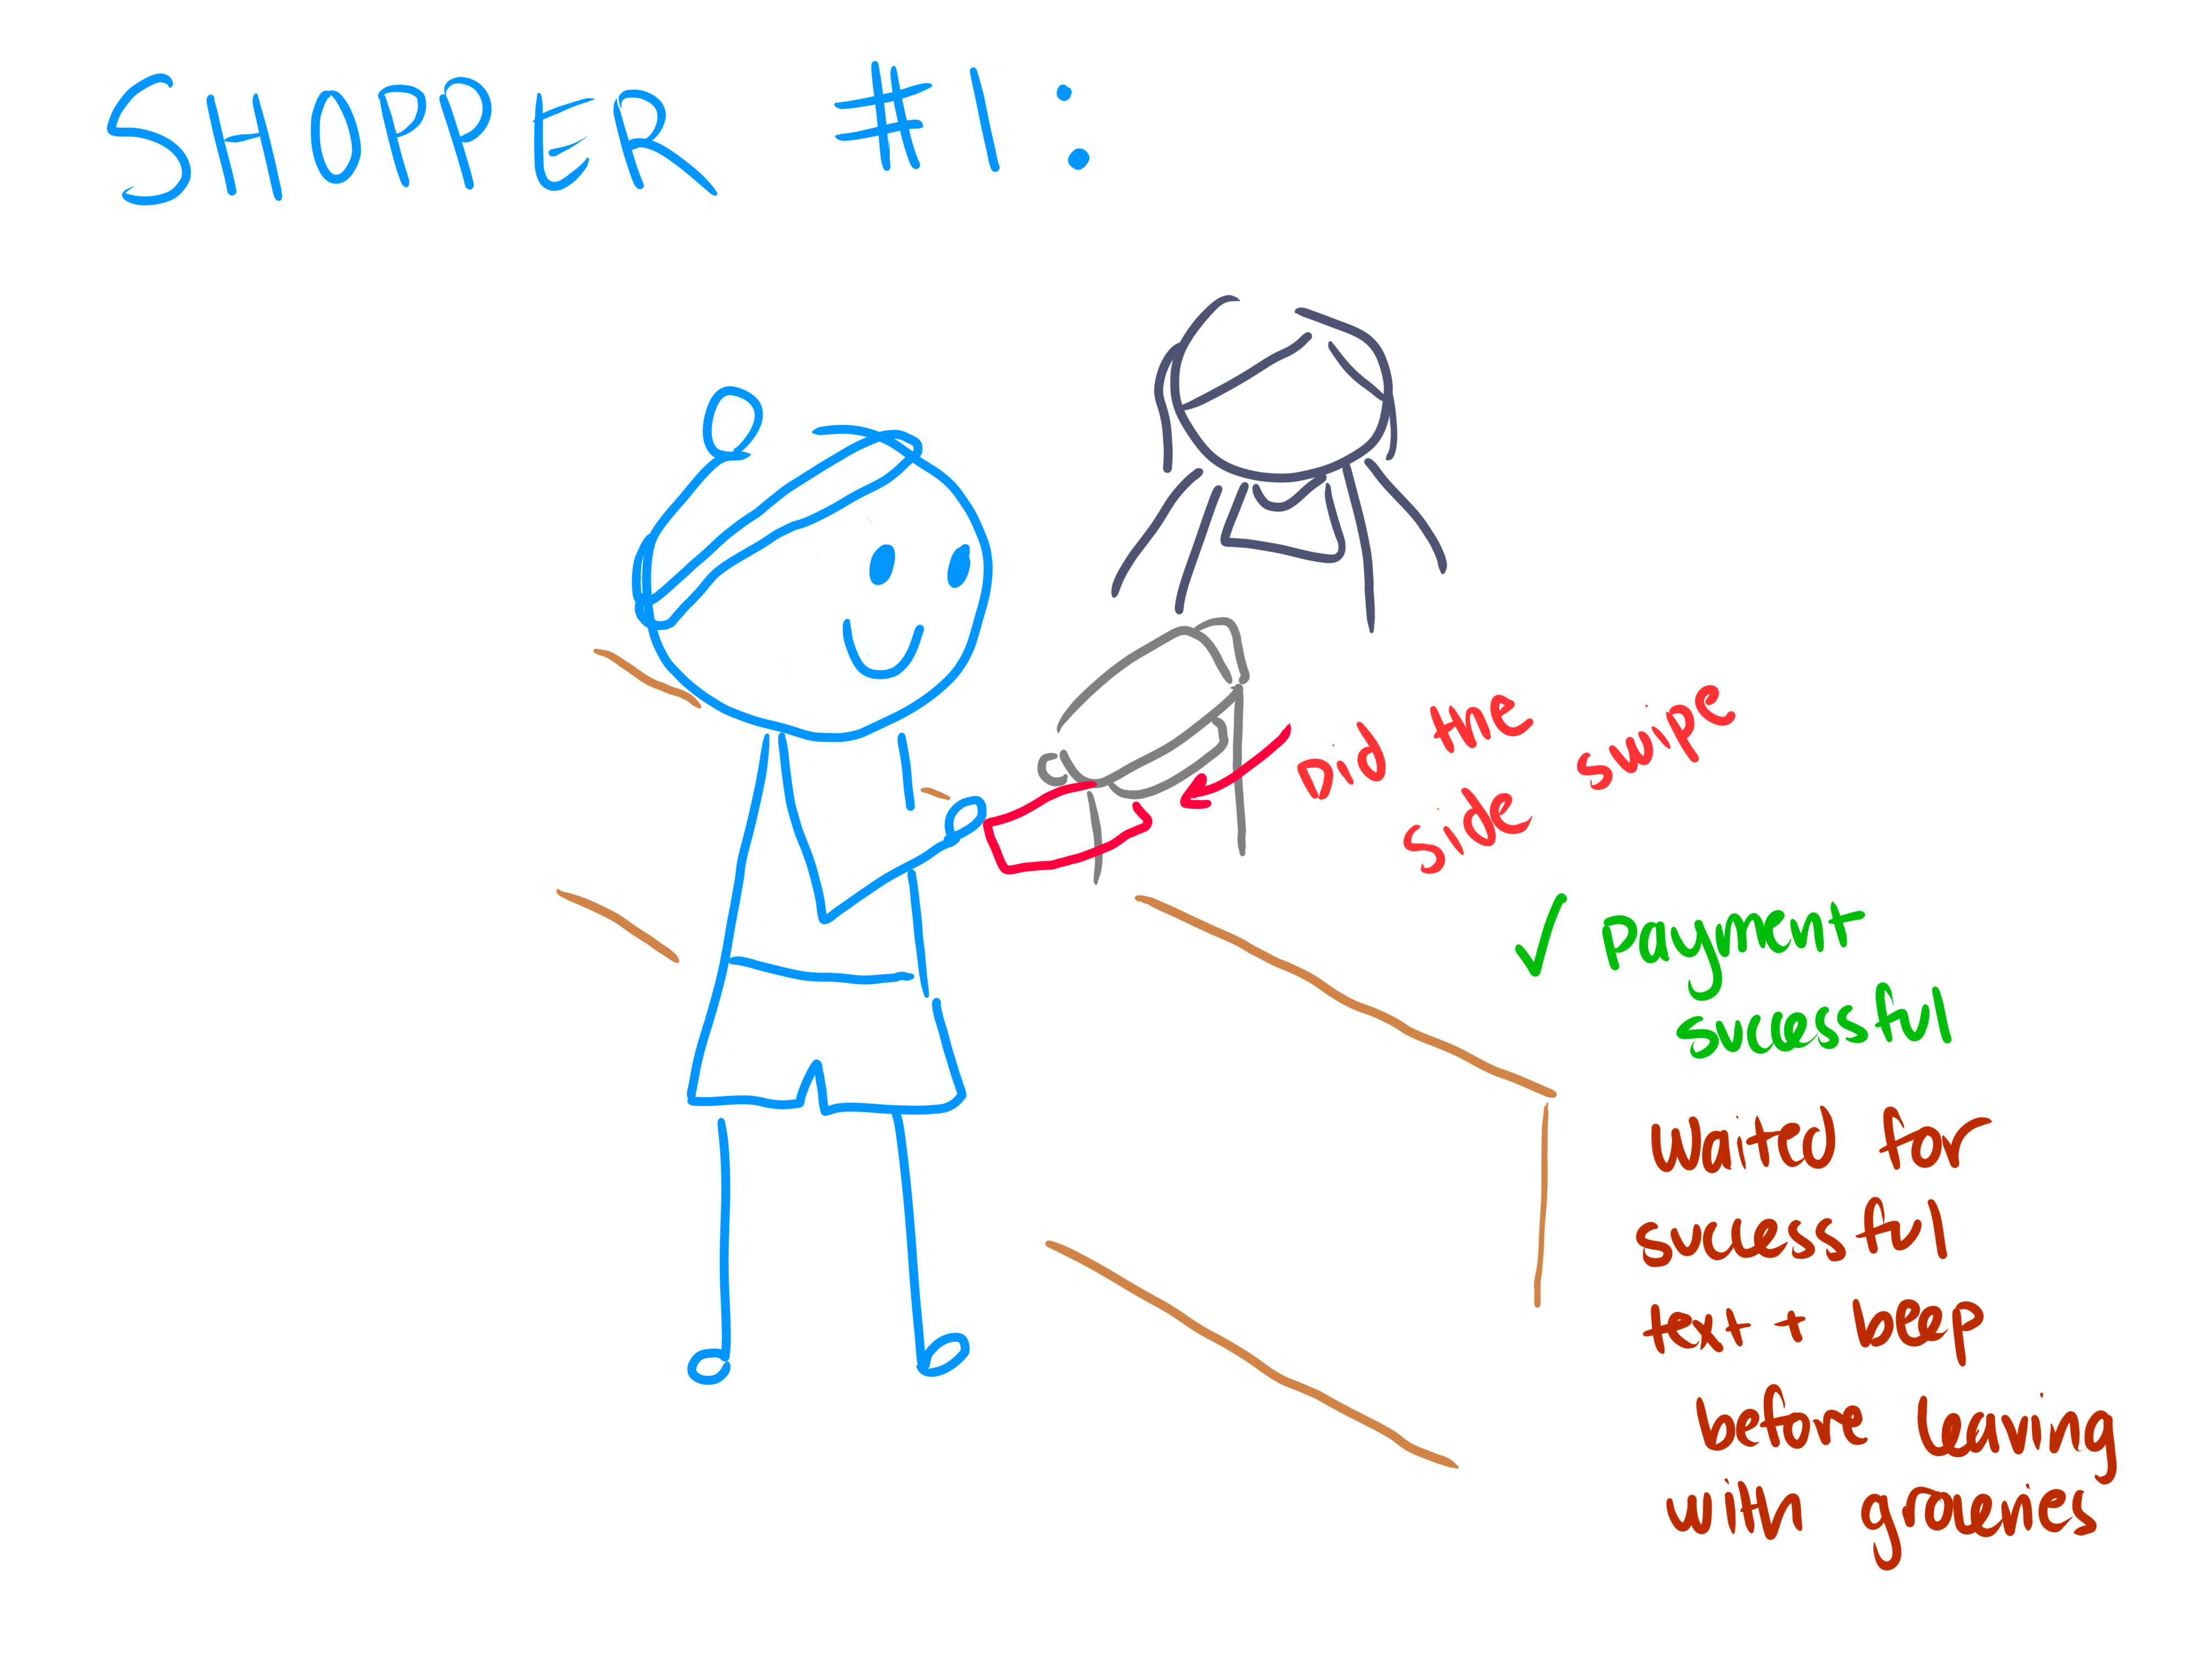 SHOPPER #1:
Did the
side swipe
✓ payment
successful
Waited for
successful
text + beep
before leaving
with groceries